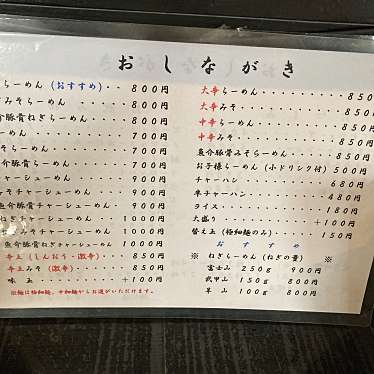 おしながき
らーめん(おすすめ)・・800円
みそらーめん・・・・・800円
介豚骨ねぎらーめん・・800円
らーめん・・・・・・・700円
そらーめん・・・・・・700円
介豚骨らーめん・・・・700円
チャーシューめん・・・900円
みそチャーシューめん・・900円
魚介豚骨チャーシューめん・・900円
ねぎチャーシューめん・・1000円
ねぎみそチャーシューめん・・1000円
魚介豚骨ねぎチャーシューめん 1000円
辛王(しんおう・激辛)・・850円
辛王みそ(激辛)・・・850円
味玉・・・・・・・・+100円
※麺は極細麺、中細麺からお選びいただけます。
大辛らーめん・・・・・・850
大辛みそ・・・・・・・・850
中辛らーめん・・・・・・850
中辛みそ・・・・・・・・850
魚介豚骨みそらーめん・・850円
お子様らーめん(小ドリンク付)500円
チャーハン・・・・・・・680円
半チャーハン・・・・・・480円
ライス・・・・・・・・・180円
大盛り・・・・・・・・+100円
替え玉(極細麺のみ)・・150円
おすすめ
※ ねぎらーめん(ねぎの量) ※
富士山 250g 900円
武甲山 150g 800円
羊山 100g 800円